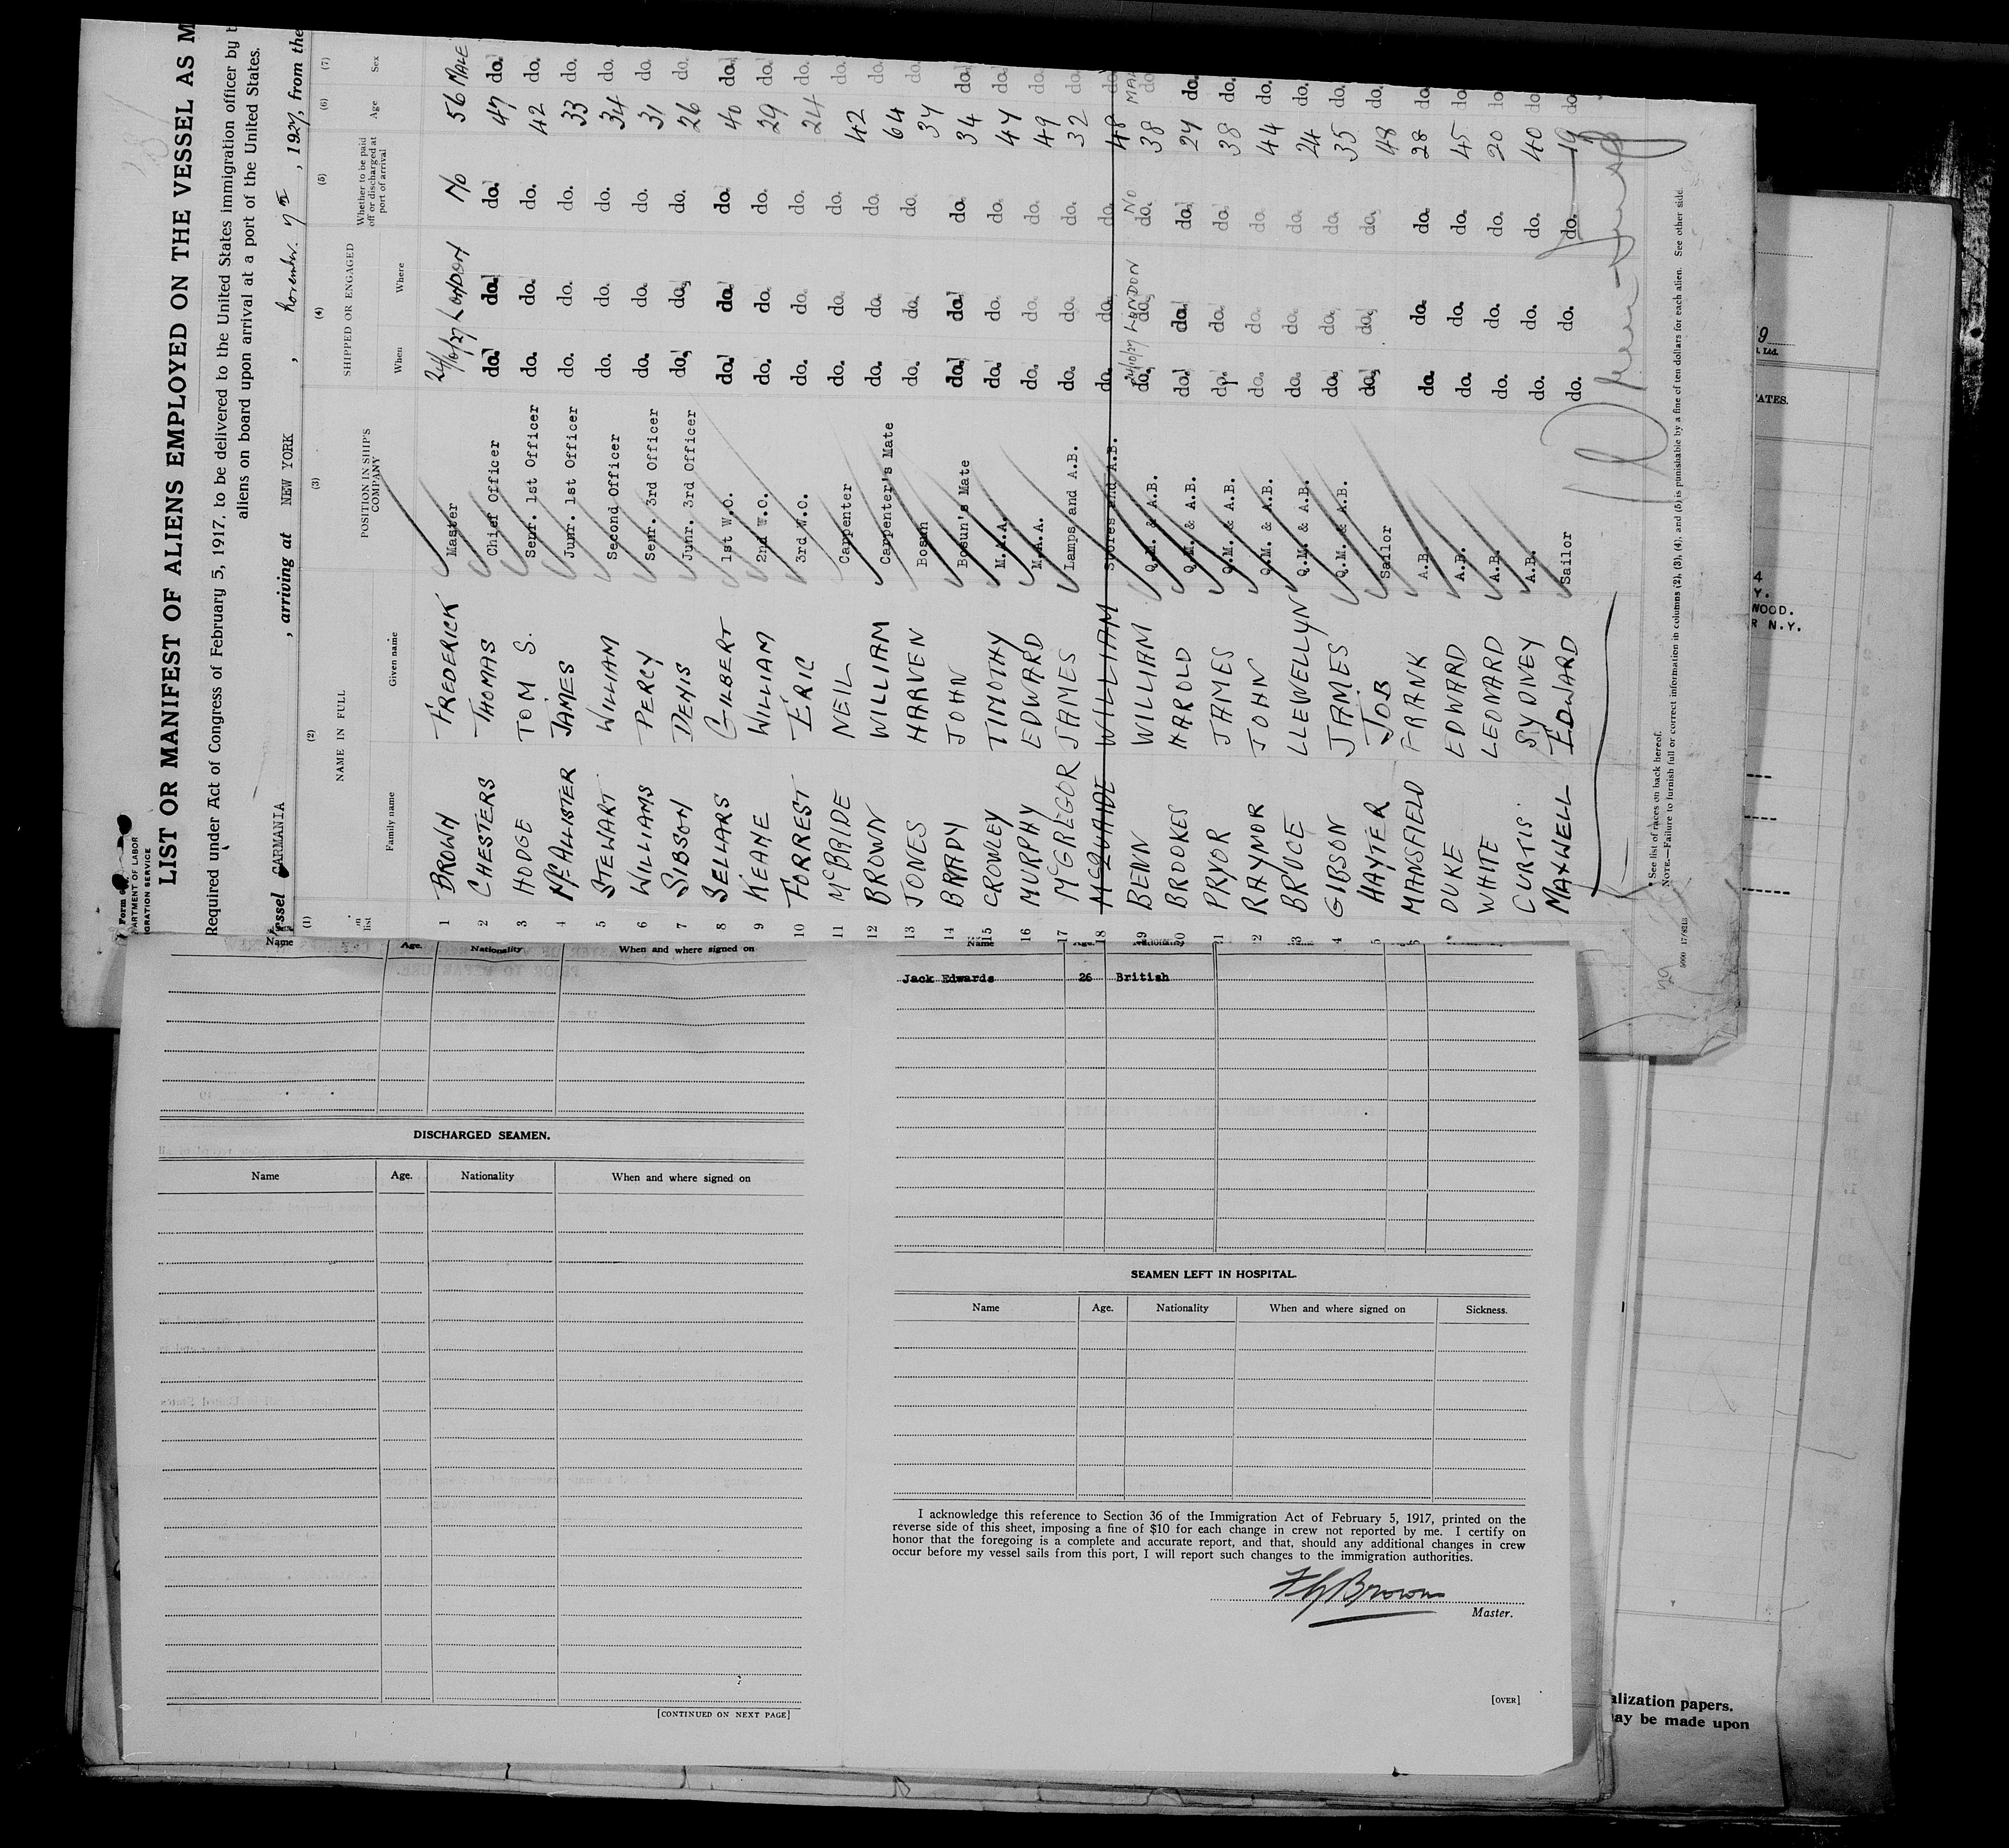 LIST OR MANIFEST OF ALIENS EMPLOYED ON THE VESSEL AS M
Required under Act of Congress of February 5, 1917, to be delivered to the United States immigration officer by t
aliens on board upon arrival at a port of the United States.
essel CARMANIA , arriving at NEW YORK , November 7th , 1927, from the
(1) (2) (3) (4) (5) (6) (7)
NAME IN FULL POSITION IN SHIP'S COMPANY SHIPPED OR ENGAGED Whether to be paid off or discharged at port of arrival Age Sex
list Family name Given name When Where
1 BROWN FREDERICK Master 24/10/27 LONDON No 56 MALE
2 CHESTERS THOMAS Chief Officer do. do. do. 47 do.
3 HODGE TOM S. Senr. 1st Officer do. do. do. 42 do.
4 McALLISTER JAMES Junr. 1st Officer do. do. do. 33 do.
5 STEWART WILLIAM Second Officer do. do. do. 34 do.
6 WILLIAMS PERCY Senr. 3rd Officer do. do. do. 31 do.
7 SIBSON DENIS Junr. 3rd Officer do. do. do. 26 do.
8 SELLARS GILBERT 1st W.O. do. do. do. 40 do.
9 KEANE WILLIAM 2nd W.O. do. do. do. 29 do.
10 FORREST ERIC 3rd W.O. do. do. do. 24 do.
11 McBRIDE NEIL Carpenter do. do. do. 42 do.
12 BROWN WILLIAM Carpenter's Mate do. do. do. 64 do.
13 JONES HARVEN Bosun do. do. do. 37 do.
14 BRADY JOHN Bosun's Mate do. do. do. 34 do.
15 CROWLEY TIMOTHY M.A.A. do. do. do. 47 do.
16 MURPHY EDWARD M.A.A. do. do. do. 49 do.
17 McGREGOR JAMES Lamps and A.B. do. do. do. 32 do.
18 McQUAIDE WILLIAM Stores and A.B. do. do. do. 48 do.
19 BENN WILLIAM Q.M. & A.B. 24/10/27 do. LONDON do. No do. 38 MALE do.
20 BROOKES HAROLD Q.M. & A.B. do. do. do. 27 do.
21 PRYOR JAMES Q.M. & A.B. do. do. do. 38 do.
2 RAYNOR JOHN Q.M. & A.B. do. do. do. 44 do.
3 BRUCE LLEWELLYN Q.M. & A.B. do. do. do. 24 do.
4 GIBSON JAMES Q.M. & A.B. do. do. do. 35 do.
5 HAYTER JOB Sailor do. do. do. 48 do.
MANSFIELD FRANK A.B. do. do. do. 28 do.
DUKE EDWARD A.B. do. do. do. 45 do.
WHITE LEONARD A.B. do. do. do. 20 do.
CURTIS. SYDNEY A.B. do. do. do. 40 do.
MAXWELL EDWARD Sailor do. do. do. 19 do.
* See list of races on back hereof.
NOTE.—Failure to furnish full or correct information in columns (2), (3), (4), and (5) is punishable by a fine of ten dollars for each alien. See other side.
Name Age. Nationality When and where signed on
DISCHARGED SEAMEN.
Name Age. Nationality When and where signed on
[CONTINUED ON NEXT PAGE]
Jack Edwards 26 British
SEAMEN LEFT IN HOSPITAL.
Name Age. Nationality When and where signed on Sickness.
I acknowledge this reference to Section 36 of the Immigration Act of February 5, 1917, printed on the
reverse side of this sheet, imposing a fine of $10 for each change in crew not reported by me. I certify on
honor that the foregoing is a complete and accurate report, and that, should any additional changes in crew
occur before my vessel sails from this port, I will report such changes to the immigration authorities.
Brown
Master.
[OVER]
9
Ltd.
ATES.
4
Y.
WOOD.
R N.Y.
alization papers.
ay be made upon